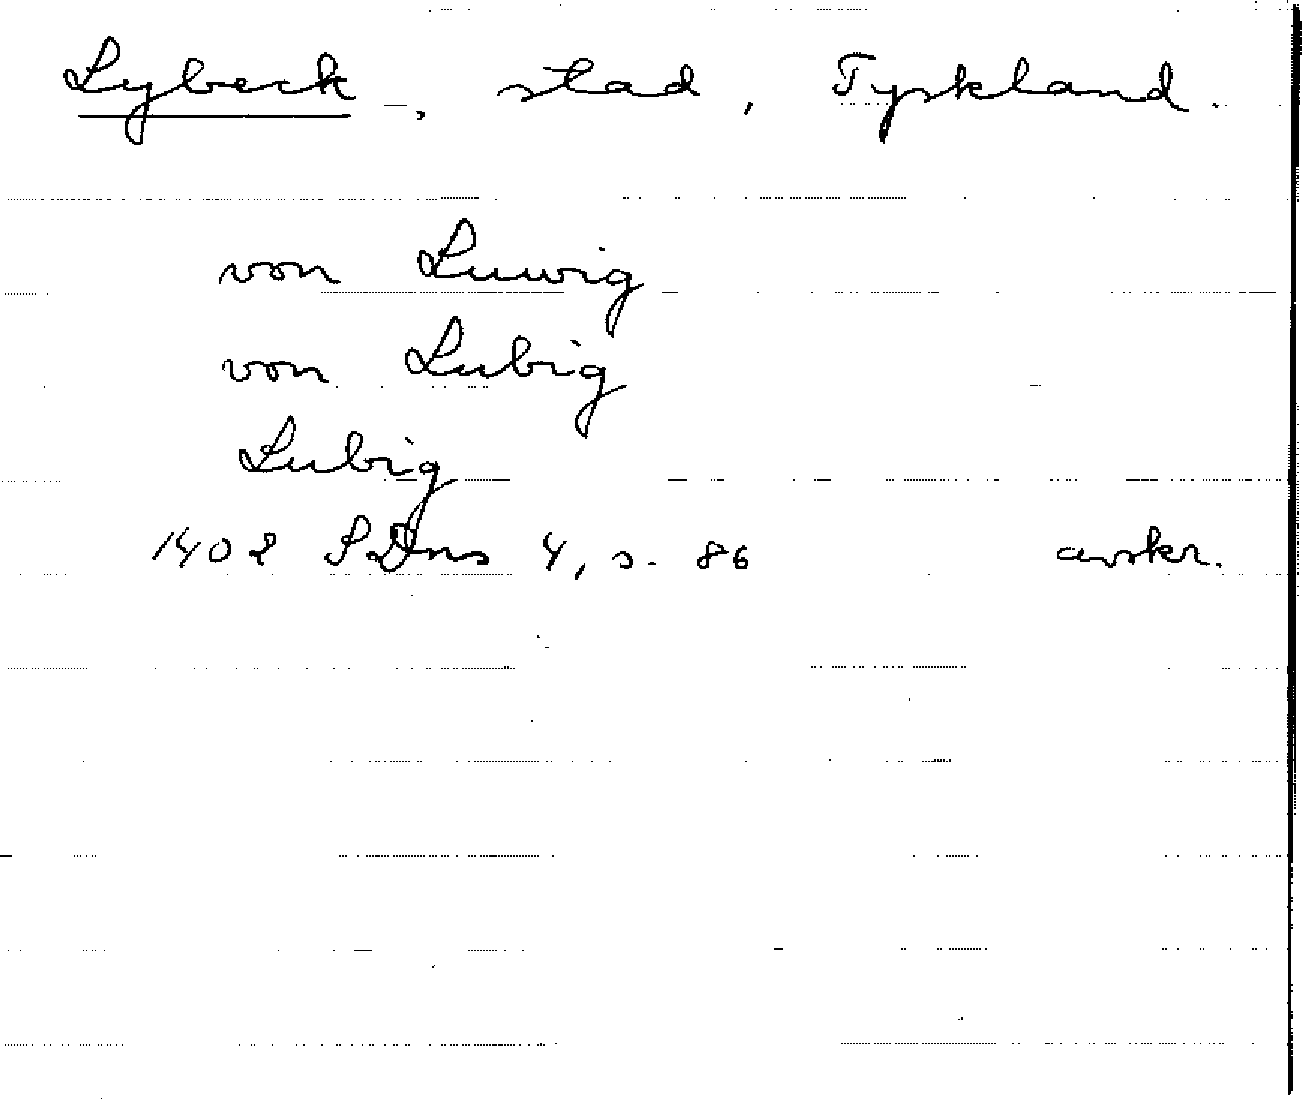 Lybeck, stad, Tyskland.
von Luwig
von Lubig
Lubig
1402 SDns 4, s. 86 avskr.